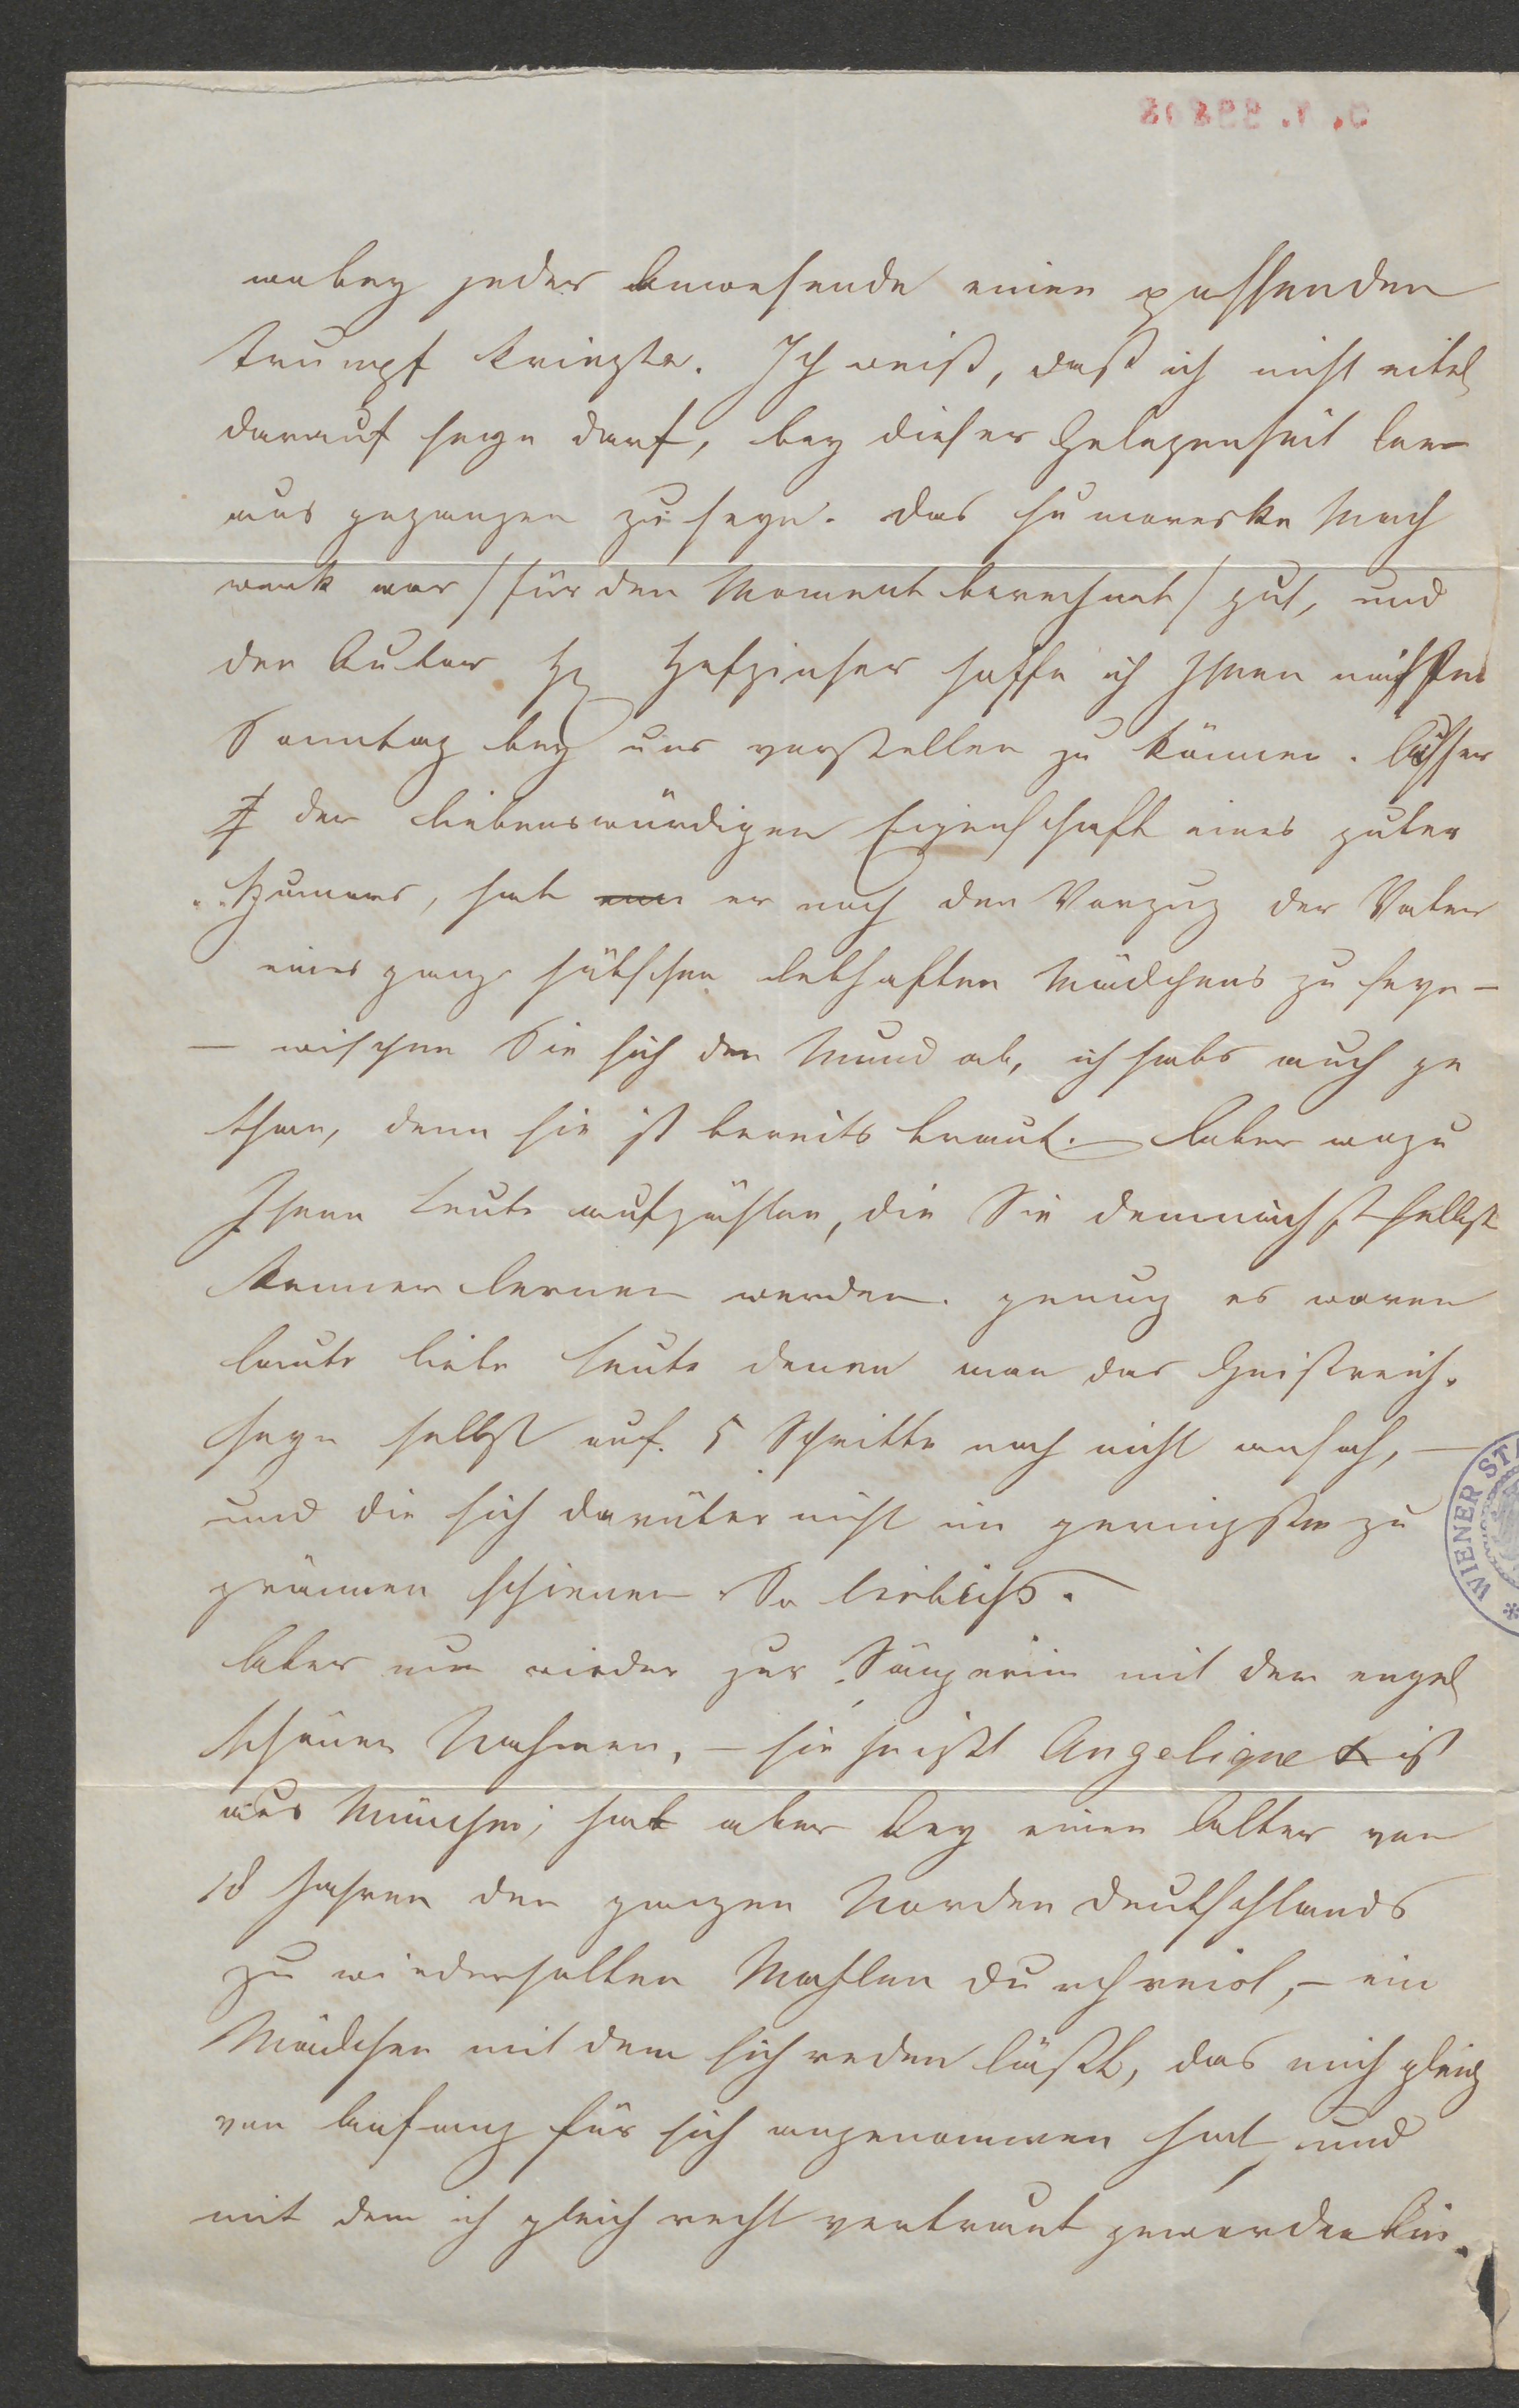 wobey jeder Anwesende einen passenden
Trumpf kriegte. Ich weiß, daß ich nicht eitel
darauf seyn darf, bey dieser Gelegenheit leer
aus gegangen zu seyn. Das humoreske Mach
werk war /für den Moment berechnet/ gut, und
den Autor H Hofzinser hoffe ich Ihnen nächsten
Sonntag bey uns vorstellen zu können. Ausser
der liebenswürdigen Eigenschaft eines guten
Humors, hat er noch den Vorzug der Vater
eines ganz hübschen lebhaften Mädchens zu seyn –
– wischen Sie sich den Mund ab, ich habs auch ge
than, denn sie ist bereits Braut. – Aber wozu
Ihnen Leute aufzählen, die Sie demnächst selbst
kennen lernen werden. genug es waren
lauter liebe Leute denen man das Geistreich-
seyn selbst auf 5 Schritte noch nicht ansah, –
und die sich darüber nicht im geringsten zu
grämen schienen So lieblich.
Aber nun wieder zur Sängerinn mit dem engel
schönen Nahmen, – sie heißt Angelique ist
aus München, hat aber bey einem Alter von
18 Jahren den ganzen Norden Deutschlands
zu wiederholten Mahlen durchreist, – ein
Mädchen mit dem sich reden läßt, das mich gleich
von Anfang für sich angenommen hat, und
mit dem ich gleich recht vertraut geworden bin.
WIENER ST